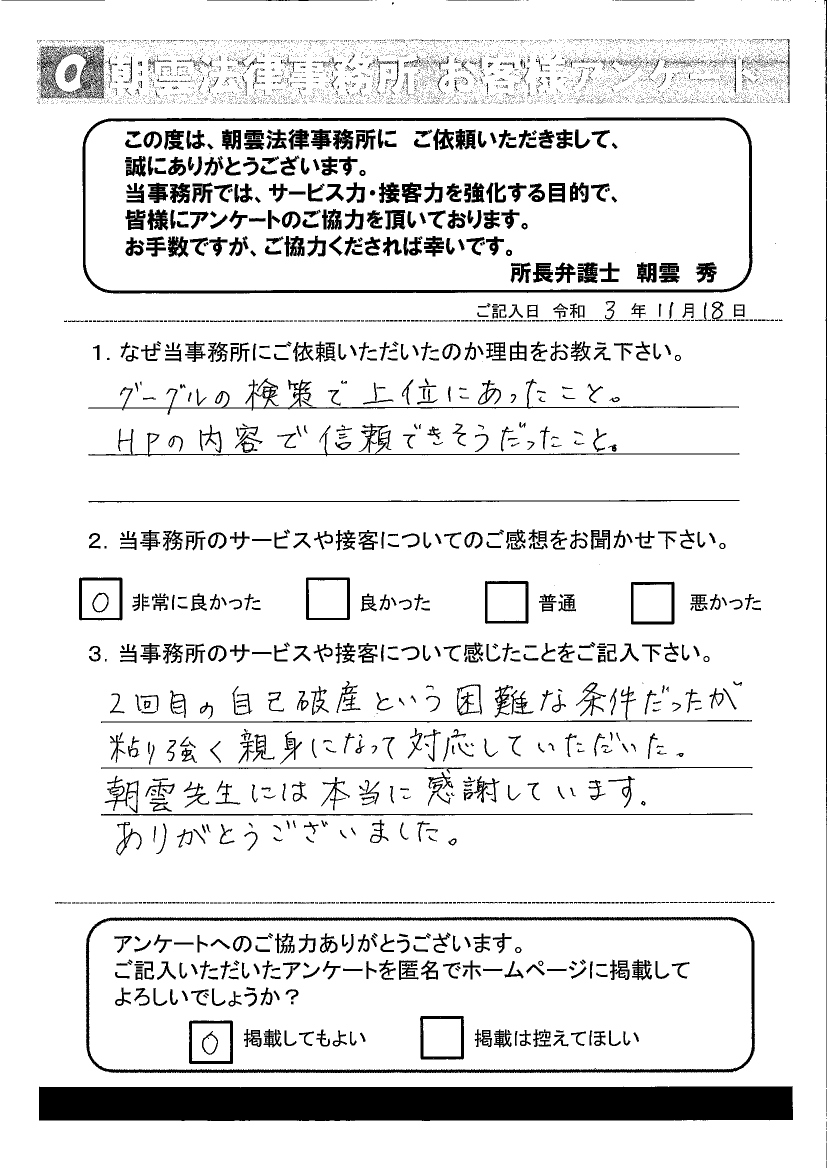 a 朝雲法律事務所 お客様アンケート
この度は、朝雲法律事務所に ご依頼いただきまして、
誠にありがとうございます。
当事務所では、サービス力・接客力を強化する目的で、
皆様にアンケートのご協力を頂いております。
お手数ですが、ご協力くだされば幸いです。
所長弁護士 朝雲 秀
ご記入日 令和 3 年 11月 18日
1. なぜ当事務所にご依頼いただいたのか理由をお教え下さい。
グーグルの検策で上位にあったこと。
HPの内容で信頼できそうだったこと。
2. 当事務所のサービスや接客についてのご感想をお聞かせ下さい。
○ 非常に良かった 良かった 普通 悪かった
3. 当事務所のサービスや接客について感じたことをご記入下さい。
2回目の自己破産という困難な条件だったが
粘り強く親身になって対応していただいた。
朝雲先生には本当に感謝しています.
ありがとうございました。
アンケートへのご協力ありがとうございます。
ご記入いただいたアンケートを匿名でホームページに掲載して
よろしいでしょうか?
○ 掲載してもよい 掲載は控えてほしい